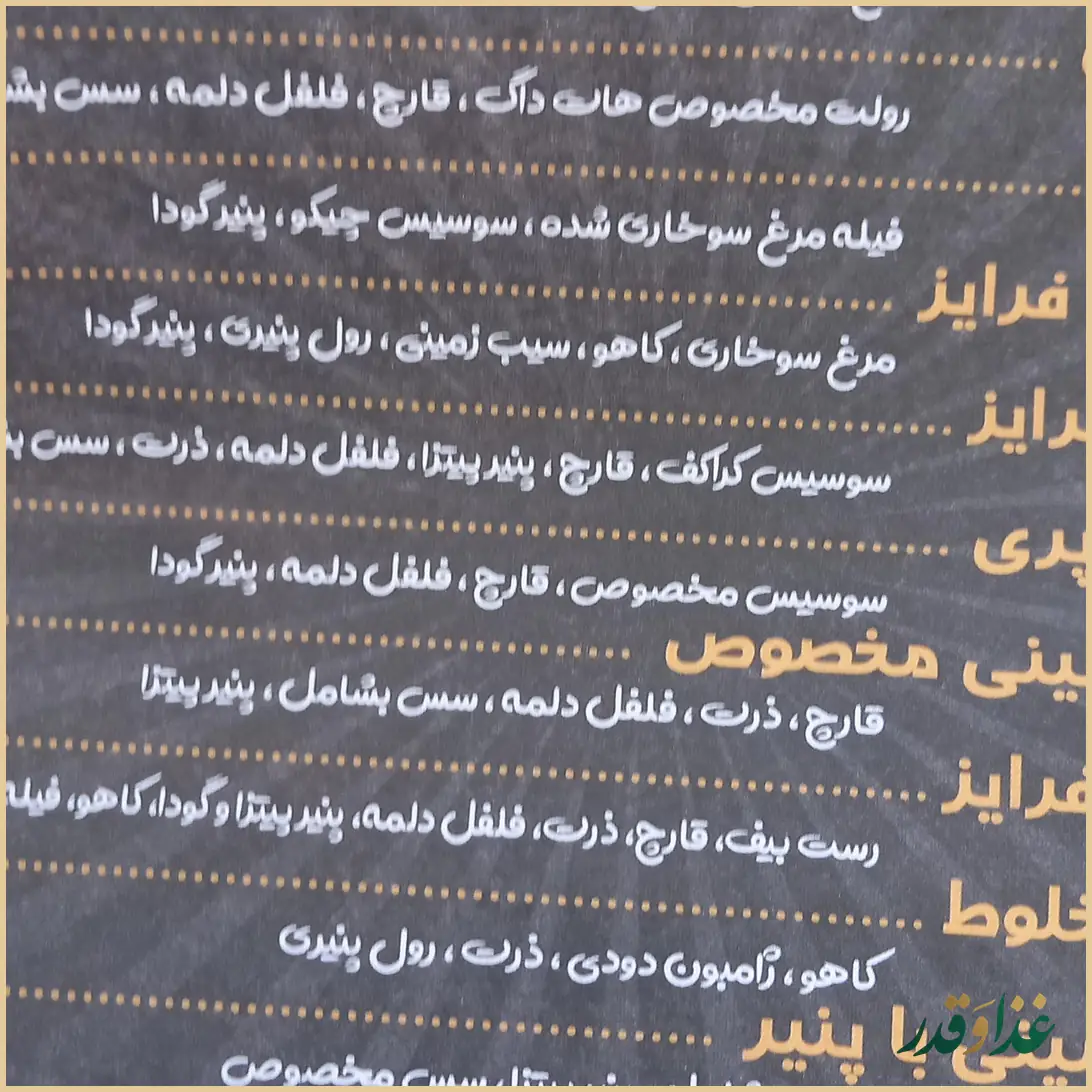 رولت مخصوص هات داگ ، قارچ ، فلفل دلمه ، سس
فیله مرغ سوخاری شده ، سوسیس چیکو ، پنیر گودا
فرایز
مرغ سوخاری ، کاهو ، سیب زمینی ، رول پنیری ، پنیر گودا
رایز
سوسیس کراکف ، قارچ ، پنیر پیتزا ، فلفل دلمه ، ذرت ، سس
پری
سوسیس مخصوص ، قارچ ، فلفل دلمه ، پنیر گودا
ینی مخصوص
قارچ ، ذرت ، فلفل دلمه ، سس بشامل ، پنیر پیتزا
فرایز
رست بیف، قارچ، ذرت، فلفل دلمه، پنیر پیتزا و گودا، کاهو، فیله
خلوط
کاهو ، ژامبون دودی ، ذرت ، رول پنیری
ینی با پنیر
غذا و قدر
سس مخصوص